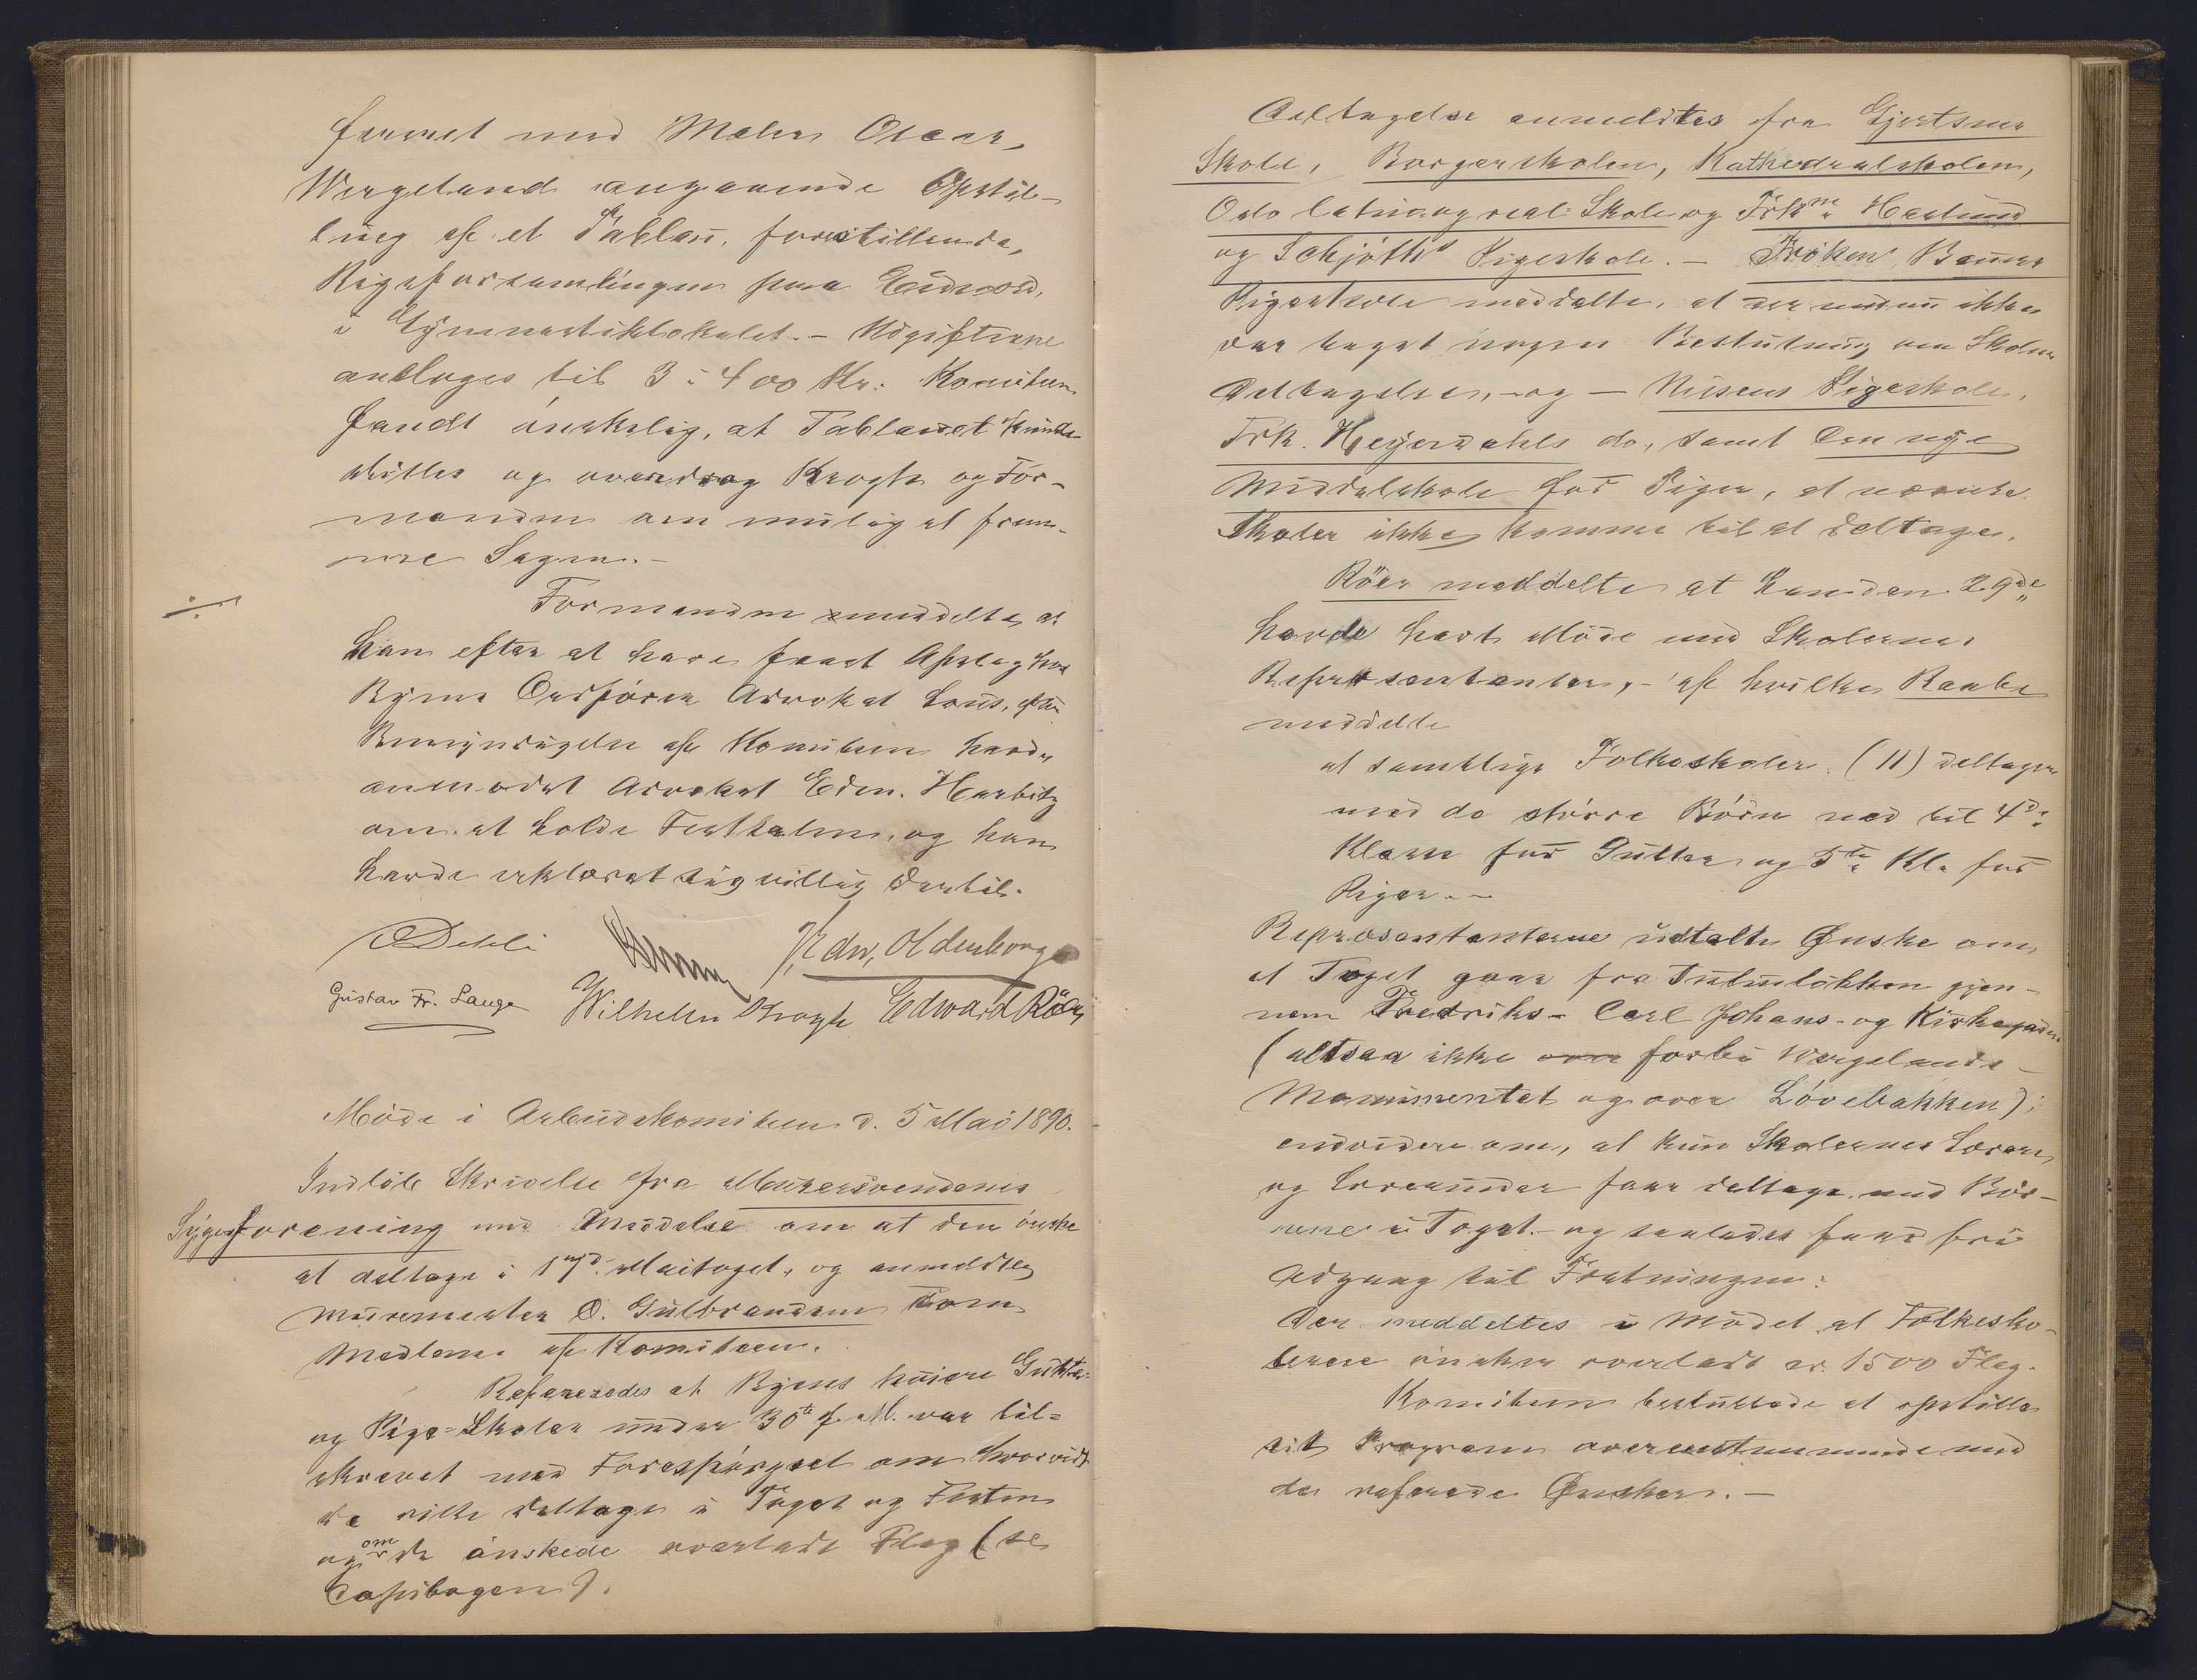 fewnet med Maler Oscar
Wergeland angaaende Opstil-
ling af et Tablau, forestillende
Rigsforsamlingen paa Eidsvold,
i Gymnastiklokalet. – Udgifterne
ansloges til 3 à 400 Kr. Komiteen
fandt ønskelig, at Tablauet kunde
stilles og overdrog Krogh og For-
manden om mulig at frem-
me Sagen. –
÷
Formanden meddelte, at
han efter at have faaet Afslag hos
Byens Ordfører Advokat Lous, efter
Bemyndigelse af Komiteen havde
anmodet Advokat Edm. Harbitz
om at holde Festtalen, og han
havde erklæret sig villig dertil.
O Dehli
Edw. Oldenborg
Gustav Fr. Lange Wilhelm Krogh Edward Röer
Møde i Arbeidskomiteen d. 5 Mai 1890.
Indløb Skrivelse fra Murersvendenes
Sygeforening med Meddelelse om at den ønsker
at deltage i 17d. Maitoget, og anmeldtes
Murermester O. Gulbrandsen som
Medlem af Komiteen.
Refereredes at Byens høiere Gutte-
og Pige-Skoler under 30te f. M. var til-
skrevet med Forespørgsel om hvorvidt
de vilde deltage i Toget og Festen
og om de ønskede overladt Flag (se
Copibogen).
Deltagelse anmeldtes fra Gjertsens
Skole, Borgerskolen, Kathedralskolen,
Oslo latin og real-Skole og Frknr Haslund
og Schjøtts Pigeskole. – Frøken Bauers
Pigeskole meddelte, at der endnu ikke
var taget nogen Beslutning om Skolens
Deltagelse, – og – Nissens Pigeskole,
Frk. Heyerdahls do, samt Den nye
Middelskole for Piger, at nævnte
Skoler ikke komme til at deltage.
Röer meddelte at han den 29de
havde havt Møde med Skolernes
Repræsentanter, – af hvilke Raabe
meddelte
at samtlige Folkeskoler (11) deltager
med de større Börn ned til 4de
Klasse for Gutter og 5te Kl. for
Piger. –
Repræsentanterne udtalte Ønske om
at Toget gaar fra Tulinløkken gjen-
nem Fredriks- Carl Johans- og Kirkegaden
(altsaa ikke over forbi Wergelands-
Monumentet og over Løvebakken);
endvidere om, at kun Skolernes Lærere
og Lærerinder faar deltage med Bör-
nene i Toget – og saaledes faar fri
Adgang til Fæstningen.
Der meddeltes i Mödet at Folkesko-
lerne ønsker overladt ca. 1500 Flag.
Komiteen besluttede at opstille
sit Program overensstemmende med
de refererede Ønsker. –